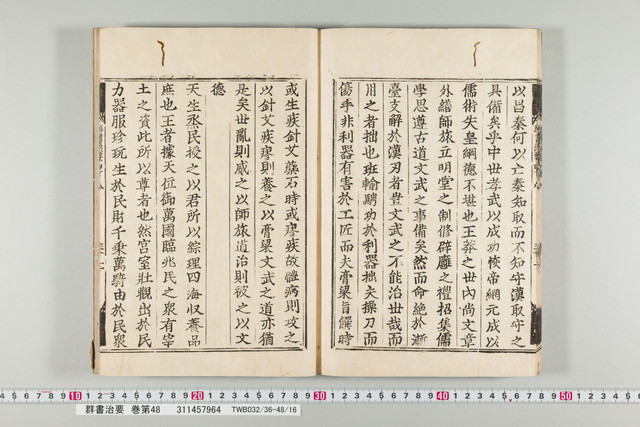 以昌秦何以亡秦知取而不知守漢取守之
具備矣乎中世孝武以成功恢帝綱元成以
儒術失皇綱德不堪也王莽之世內尚文章
外繕師旅立明堂之制修辟廱之禮招集儒
學思遵古道文武之事備矣然而命絕於漸
臺支解於漢刃者豈文武之不能治世哉而
用之者拙也班輸騁功於利器拙夫操刀而
傷手非利器有害於工匠而夫膏粱旨饌時
或生疾針艾藥石時或瘳疾故體病則攻之
以針艾疾瘳則養之以膏粱文武之道亦猶
是矣世亂則威之以師旅道治則被之以文
德
天生烝民授之以君所以綜理四海收養品
庶也王者據天位御萬國臨兆民之衆有率
土之資此所以尊者也然宮室壯觀出於民
力器服珍玩生於民財千乘萬騎由於民衆
10 20 30 40 50
群書治要 巻第48 311457964 TWB032/36-48/16